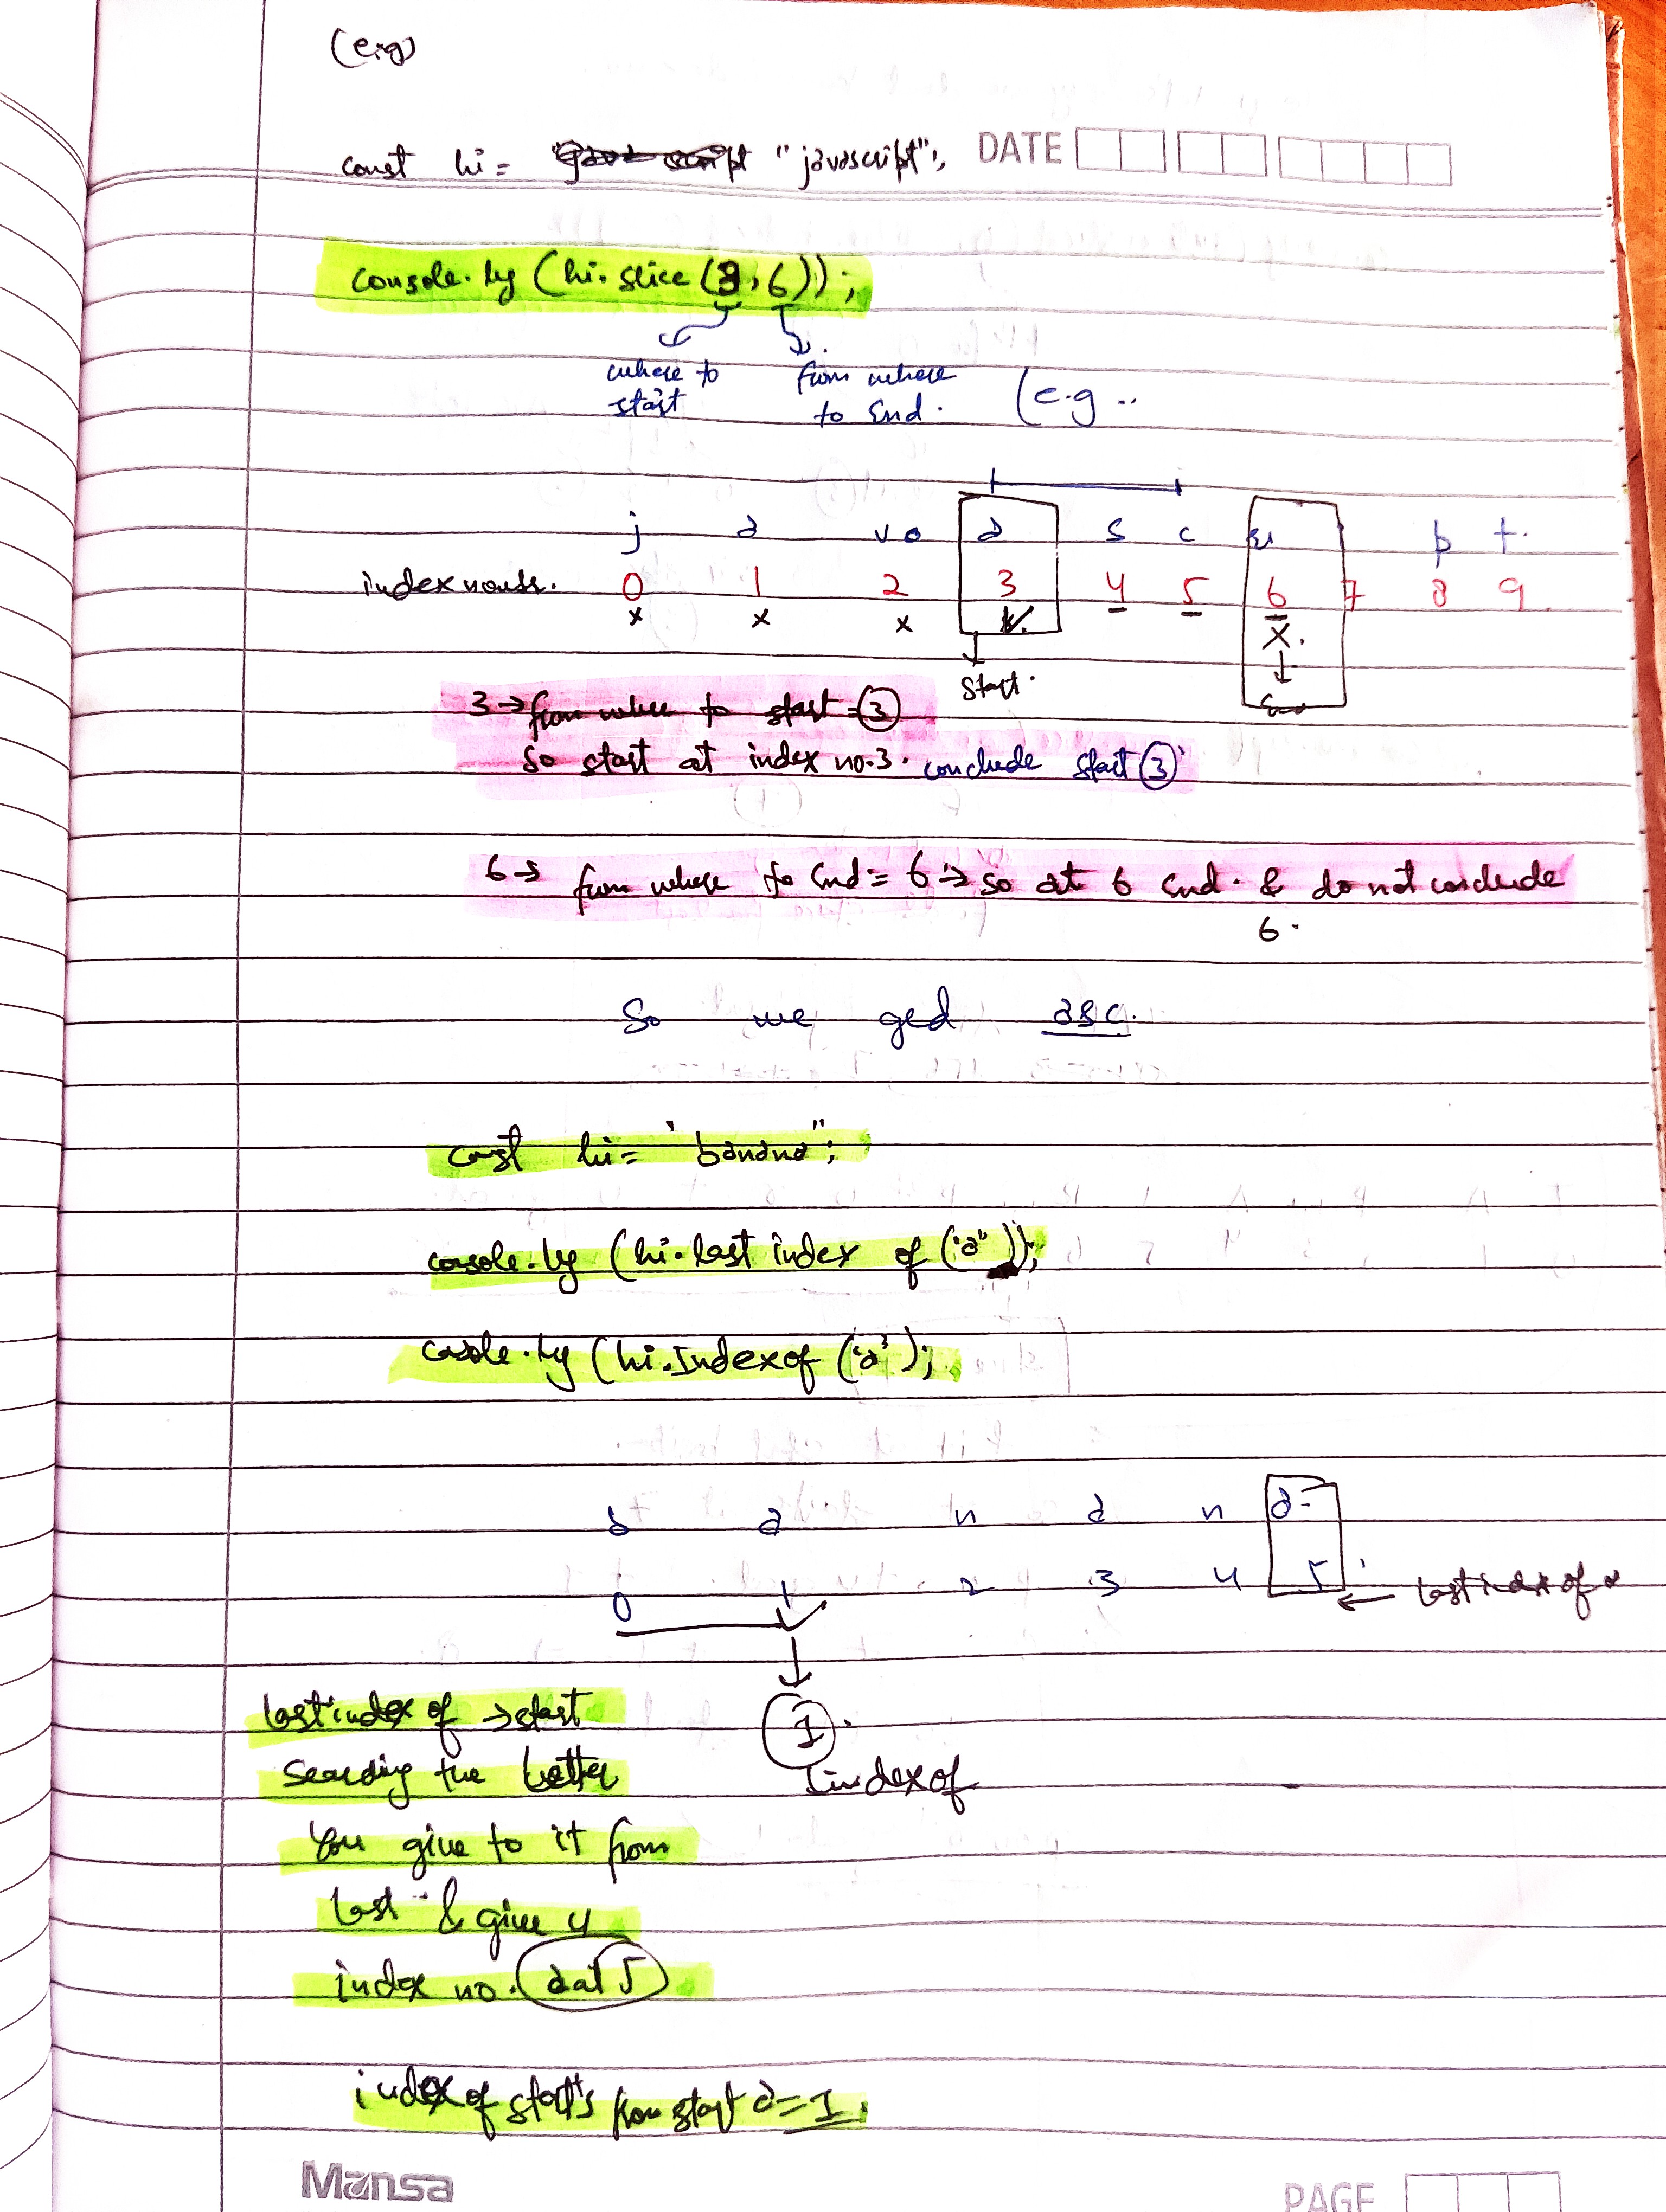 (e.g)
const hi = "javascript";
DATE
console.log (hi.slice (3,6));
where to start
from where to End.
(e.g ..
j a v a s c r i p t.
index 0 1 2 3 4 5 6 7 8 9
x x x x.
start.
End
3 → from where to start = 3
So start at index no.3. conclude start 3
6 → from where to End = 6 → so at 6 End. & do not conclude
6.
So we ged asc.
const hi = "banana";
console.log (hi.last index of ('a'));
console.log (hi.Indexof ('a');
b a n a n a
0 1 2 3 4 5 ← last index of a
1.
indexof
last index of → start
Searching the letter
You give to it from
last & give
index no. a at 5
index of starts from start a = 1.
Mansa
PAGE